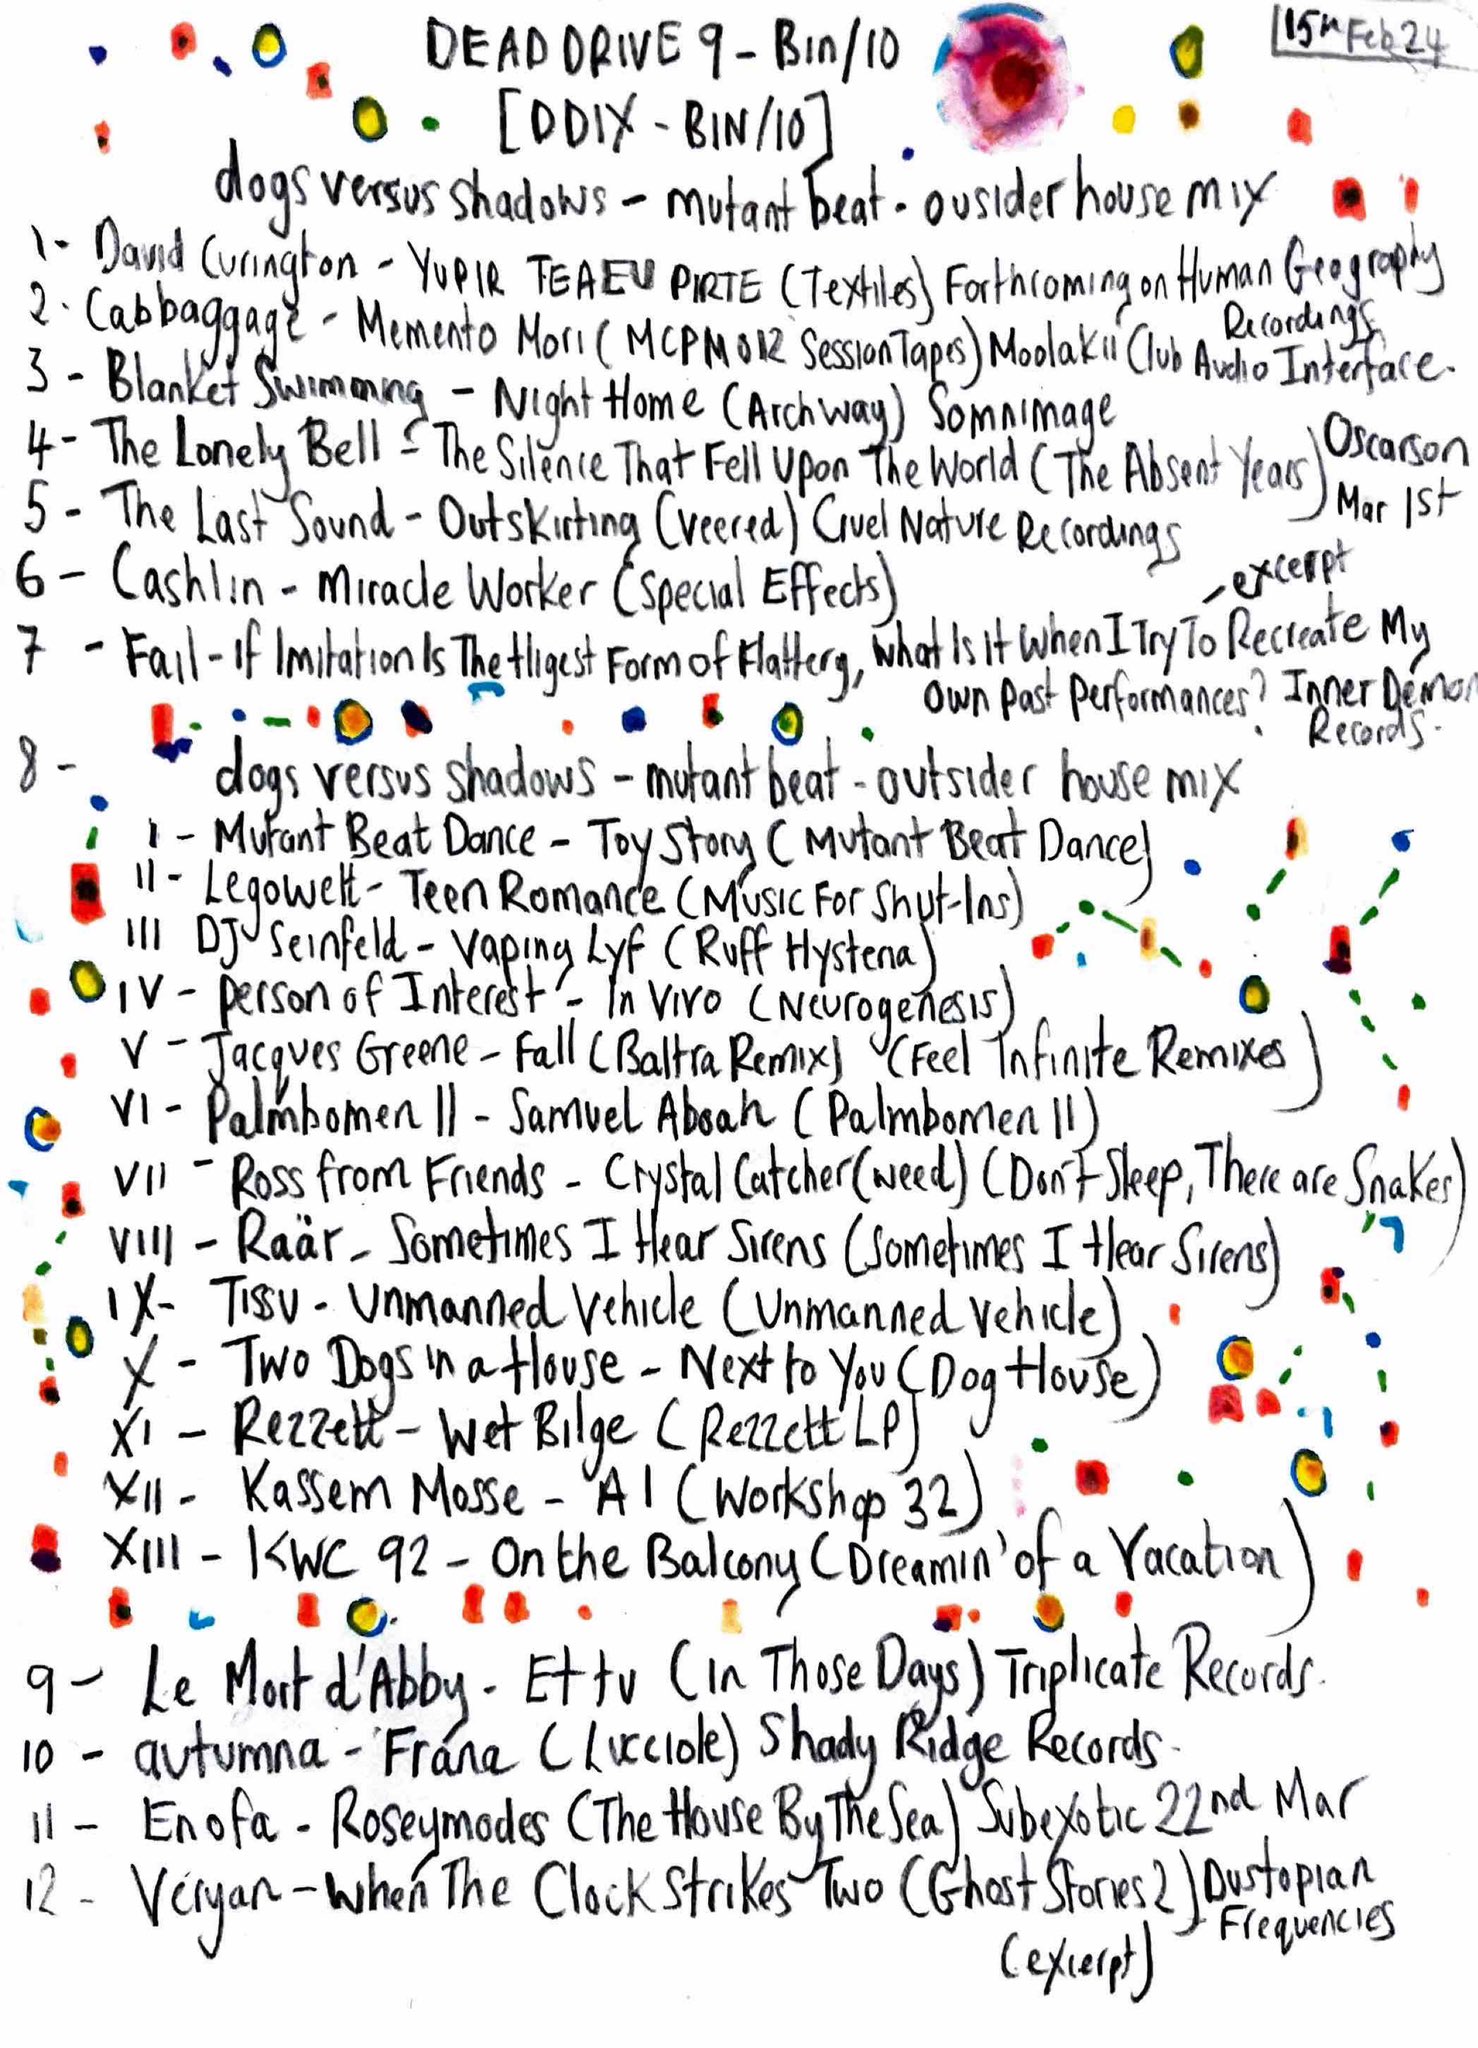 DEAD DRIVE 9 - Bin/10
15th Feb 24
[DDIX - BIN/10]
dogs versus shadows - mutant beat - ousider house mix
1 - David Curington - YUPIR TEAEU PIRTE (Textiles) Forthcoming on Human Geography Recordings
2 - Cabbaggage - Memento Mori (MCPM012 Session Tapes) Moolakii Club Audio Interface.
3 - Blanket Swimming - Night Home (Archway) Somnimage
4 - The Lonely Bell - The Silence That Fell Upon The World (The Absent Years) Oscarson Mar 1st
5 - The Last Sound - Outskirting (Veered) Cruel Nature Recordings
6 - Cashlin - Miracle Worker (Special Effects)
7 - Fail - If Imitation Is The Higest Form of Flattery, What Is It When I Try To Recreate My
Own Past Performances? Inner Demon Records.
- excerpt
8 - dogs versus shadows - mutant beat - outsider house mix
I - Mutant Beat Dance - Toy Story (Mutant Beat Dance)
II - Legowelt - Teen Romance (Music For Shut-Ins)
III DJ Seinfeld - Vaping Lyf (Ruff Hysteria)
IV - Person of Interest - In Vivo (Neurogenesis)
V - Jacques Greene - Fall (Baltra Remix) (Feel Infinite Remixes)
VI - Palmbomen II - Samuel Aboah (Palmbomen II)
VII - Ross from Friends - Crystal Catcher (weed) (Don't Sleep, There are Snakes)
VIII - Raär - Sometimes I Hear Sirens (Sometimes I Hear Sirens)
IX - Tissu - Unmanned Vehicle (Unmanned Vehicle)
X - Two Dogs in a House - Next to You (Dog House)
XI - Rezzett - Wet Bilge (Rezzett LP)
XII - Kassem Mosse - A1 (Workshop 32)
XIII - KWC 92 - On the Balcony (Dreamin' of a Vacation)
9 - Le Mort d'Abby - Et tu (In Those Days) Triplicate Records.
10 - autumna - Frána (Lucciole) Shady Ridge Records -
11 - Enofa - Roseymodes (The House By The Sea) Subexotic 22nd Mar
12 - Veryan - When The Clock Strikes Two (Ghost Stories 2) Dustopian Frequencies
(excerpt)